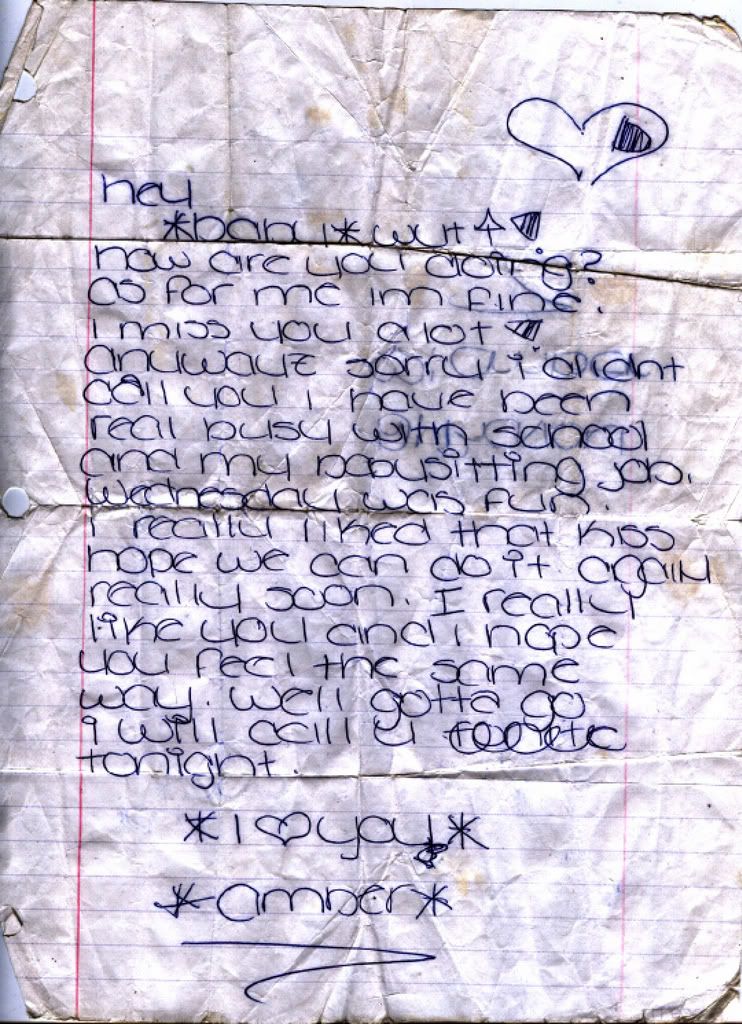 hey
*baby* wut ↑
how are you doing?
as for me im fine.
i miss you alot
anywayz sorry i didnt
call you i have been
real busy with school
and my babysitting job.
Wednesday was fun.
i really liked that kiss
hope we can do it again
really soon. I really
like you and i hope
you feel the same
way. well gotta go
i will call u
tonight.
*I ♡ you*
*amber*